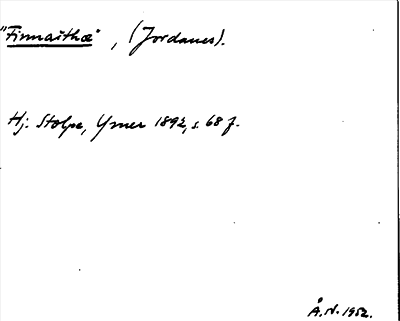 "Finnaithæ", (Jordanes).
Hj. Stolpe, Ymer 1892, s. 68 f.
Å. N. 1952.